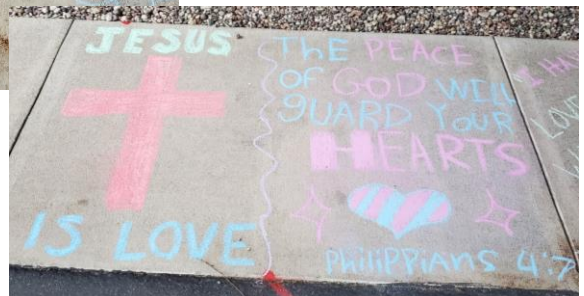 JESUS
IS LOVE
THE PEACE
OF GOD WILL
gUARD YOUR
HEARTS
PHiliPPiANS 4:7
I HA
LOVE